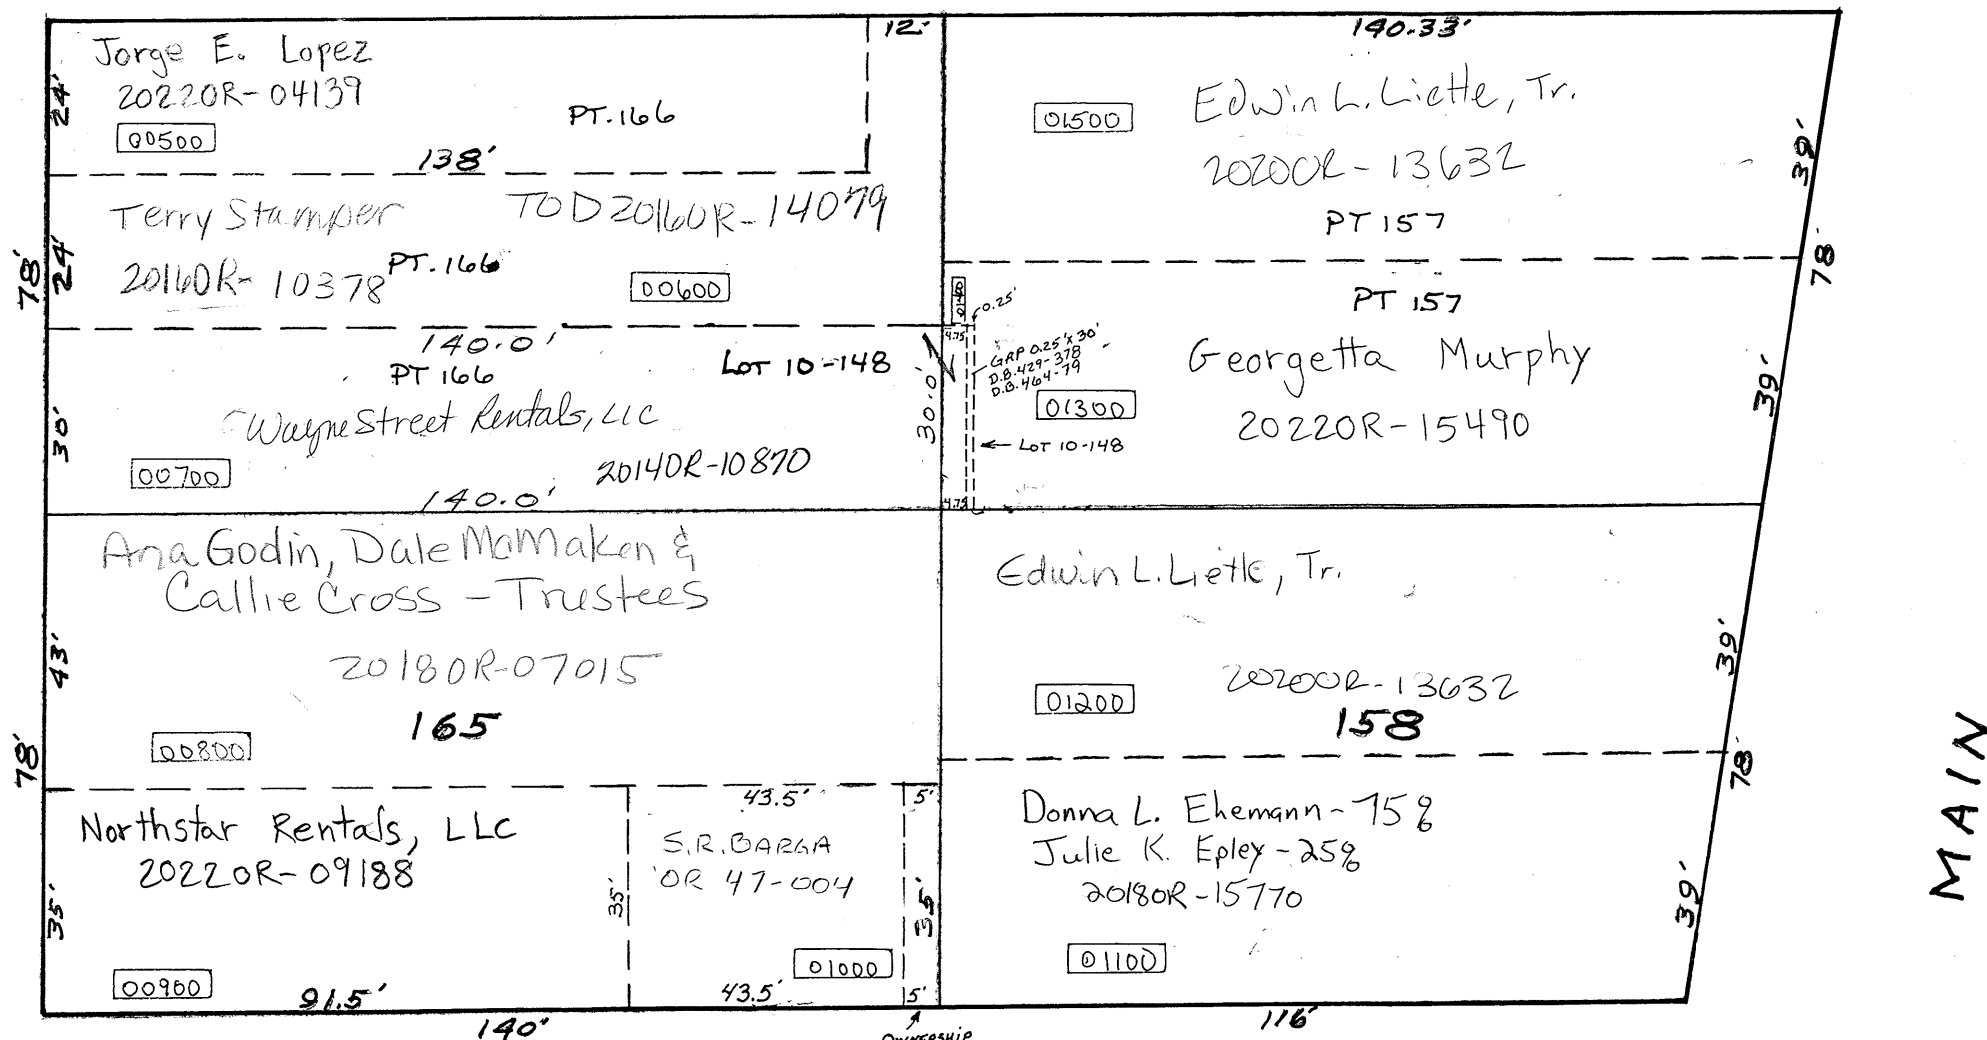 12'
140.33'
Jorge E. Lopez
2022OR-04139
00500
PT.166
24'
138'
Terry Stamper
TOD 2016OR-14079
2016OR-10378
PT.166
00600
24'
78'
140.0'
PT 166
LOT 10-148
Wayne Street Rentals, LLC
2014OR-10870
00700
30'
30.0'
140.0'
Ana Godin, Dale McMaken &
Callie Cross - Trustees
2018OR-07015
165
00800
43'
78'
Northstar Rentals, LLC
2022OR-09188
00900
35'
91.5'
140'
43.5'
5'
S.R. BARGA
OR 47-004
35'
35'
01000
43.5'
5'
OWNERSHIP
Edwin L. Liette, Tr.
01500
2020OR-13632
PT 157
39'
78'
PT 157
0.25'
4.75
GAP 0.25' x 30'
D.B. 429-378
D.B. 464-79
Georgetta Murphy
01300
2022OR-15490
LOT 10-148
39'
4.75
Edwin L. Liette, Tr.
2020OR-13632
01200
158
39'
78'
Donna L. Ehemann - 75%
Julie K. Epley - 25%
2018OR-15770
01100
39'
116'
MAIN